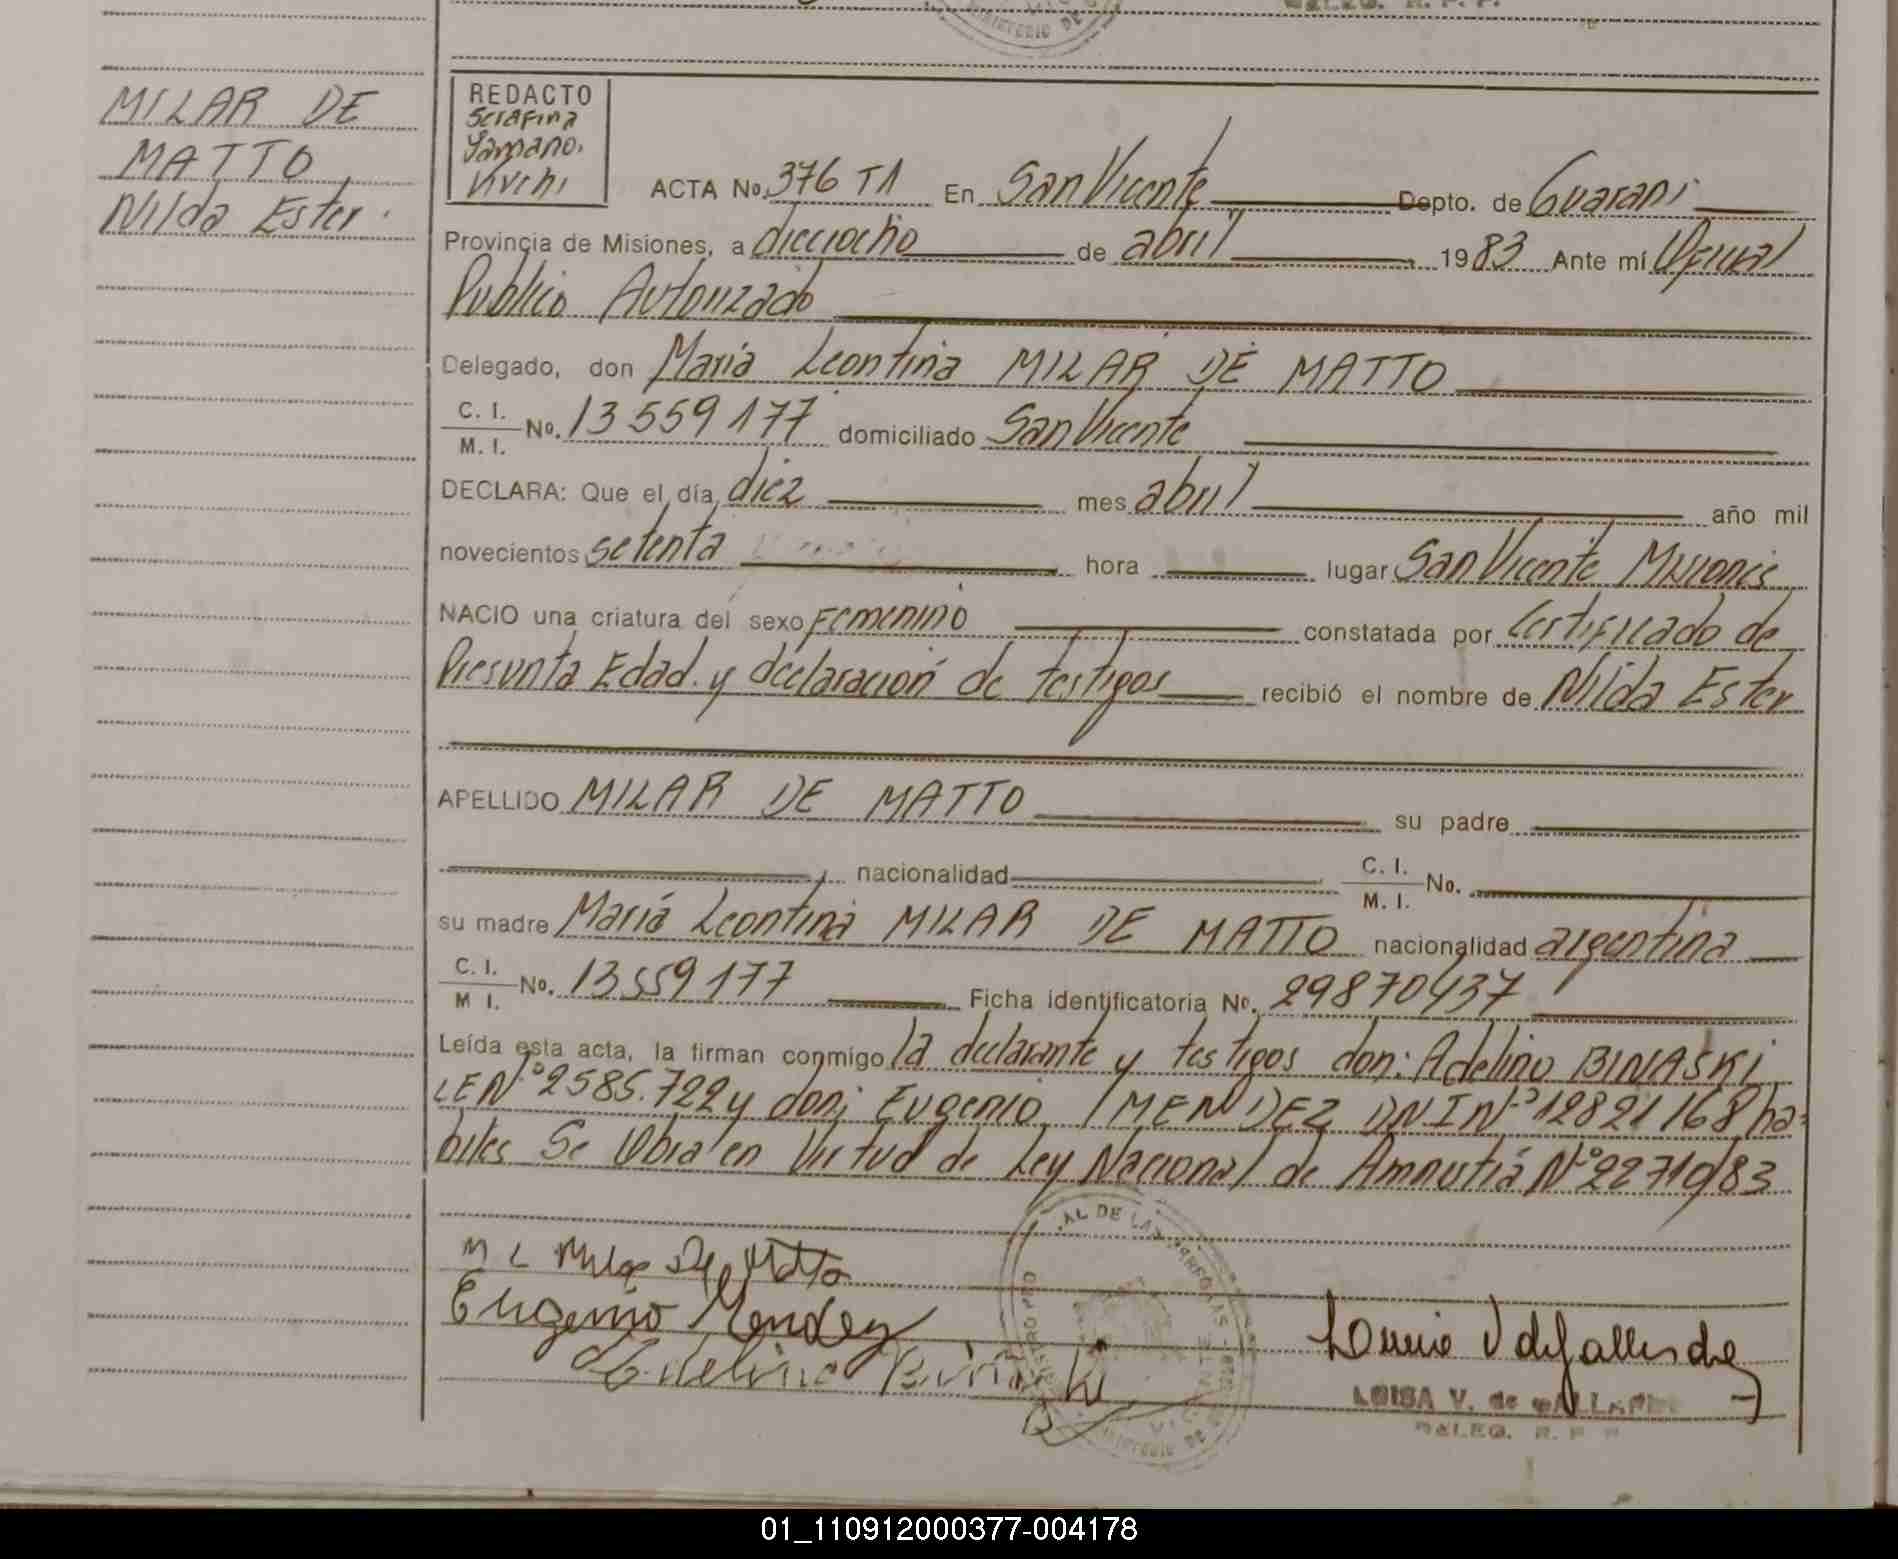 MINISTERIO DE
DELEG. R. P. P.
MILAR DE
MATTO
Nilda Ester.
REDACTO
Serafina
Vivchi
ACTA No. 376 T1 En San Vicente Depto. de Guarani
Provincia de Misiones, a dieciocho de abril 1983 Ante mí Oficial
Publico Autorizado
Delegado, don María Leontina MILAR DE MATTO
C. I.
M. I. No. 13559177 domiciliado San Vicente
DECLARA: Que el día diez mes abril año mil
novecientos setenta hora lugar San Vicente Misiones
NACIO una criatura del sexo Femenino constatada por Certificado de
Presunta Edad. y declaración de testigos recibió el nombre de Nilda Ester
APELLIDO MILAR DE MATTO su padre
nacionalidad C. I.
M. I. No.
su madre María Leontina MILAR DE MATTO nacionalidad argentina
C. I.
M I. No. 13559177 Ficha identificatoria No. 29870437
Leída esta acta, la firman conmigo la declarante y testigos don: Adelino BINASKI
LEN°2585.722 y don; Eugenio MENDEZ DNIN°12821168 ha-
biles Se Obra en Virtud de Ley Nacional de Amnistiá N°22719/83
AL DE LAS PERSONAS
M L Milar De Matto
Eugenio Mendez
LUISA V. de GALLARDO
DELEG. R. P. P.
01_110912000377-004178